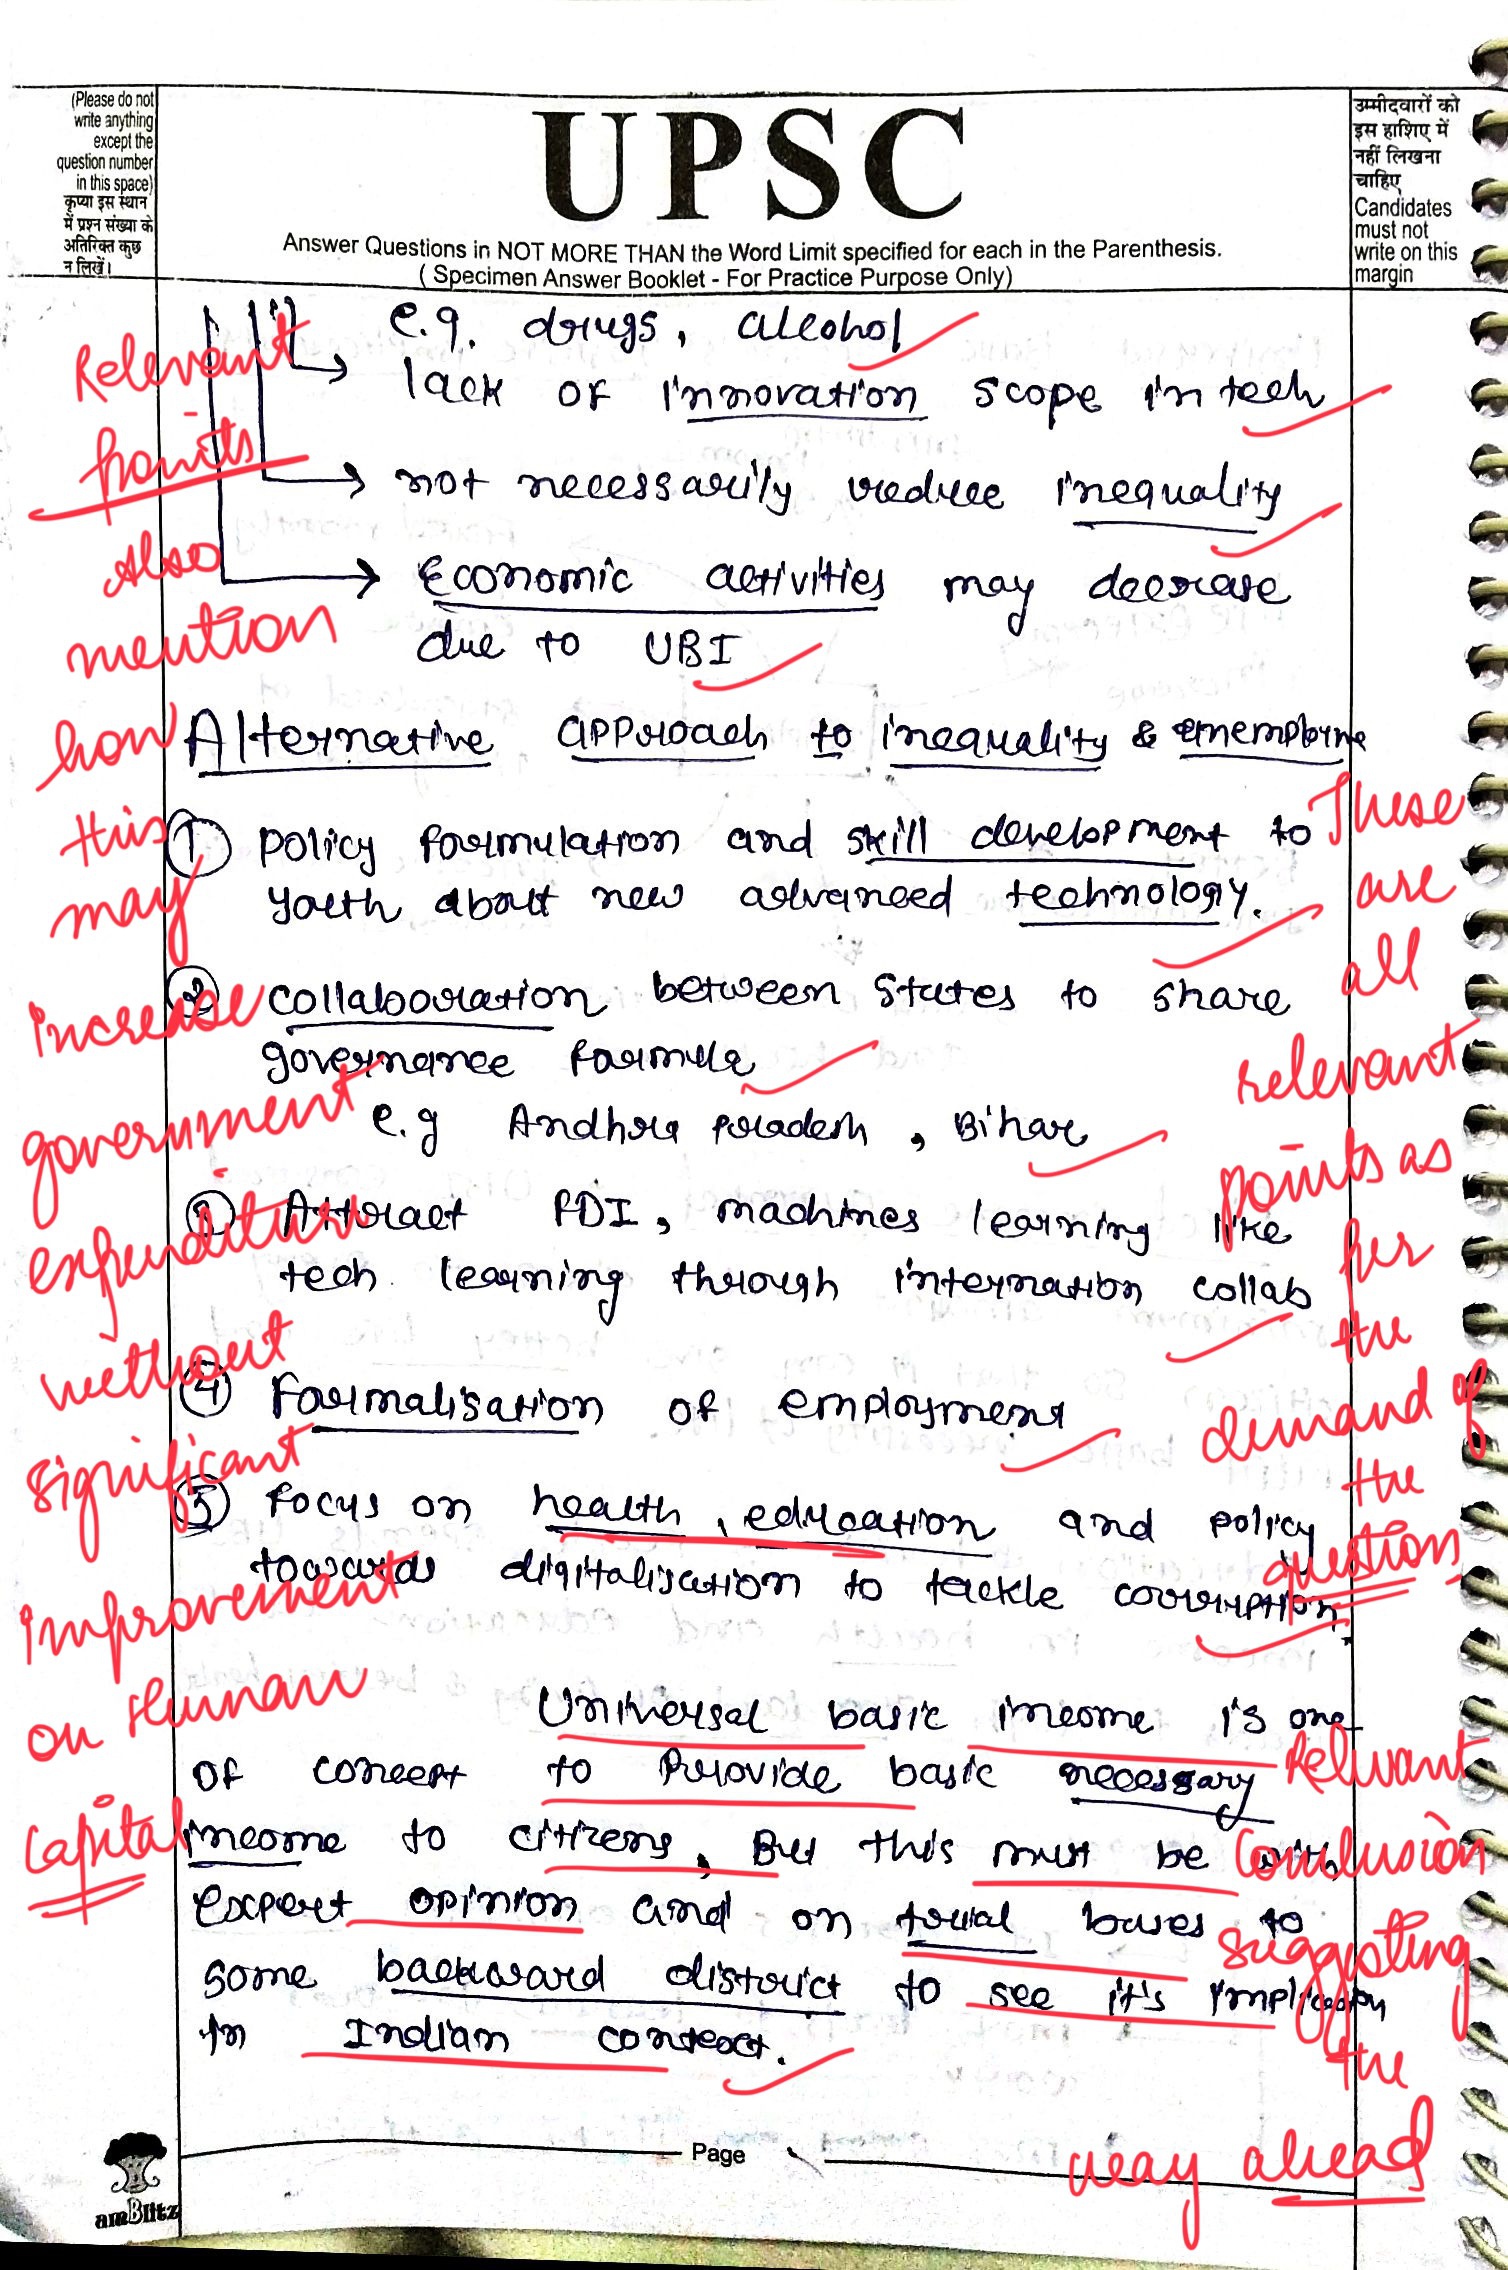 (Please do not
write anything
except the
question number
in this space)
कृप्या इस स्थान
में प्रश्न संख्या के
अतिरिक्त कुछ
न लिखें।
UPSC
Answer Questions in NOT MORE THAN the Word Limit specified for each in the Parenthesis.
( Specimen Answer Booklet - For Practice Purpose Only)
उम्मीदवारों को
इस हाशिए में
नहीं लिखना
चाहिए
Candidates
must not
write on this
margin
e.g. drugs, alcohol
lack of innovation scope in tech
not necessarily reduce inequality
Economic activities may decrease
due to UBI
Relevant
points
Also
mention
how
this
may
increase
government
expenditure
without
significant
improvement
on Human
capital
Alternative approach to inequality & unemployme
① policy formulation and skill development to
youth about new advanced technology.
② collaboration between States to share
governance formula
e.g Andhra pradesh, Bihar
③ Attract FDI, machines learning like
tech learning through internation collab
④ Formalisation of employment
⑤ focus on health, education and policy
towards digitalisation to tackle corruption.
These
are
all
relevant
points as
per
the
demand of
the
question
Universal basic income is one
of concept to Provide basic necessary
income to citizens, But this must be with
expert opinion and on trial bases to
some backward district to see it's implication
in Indian context.
Relevant
Conclusion
suggesting
the
way ahead
Page
amBlitz